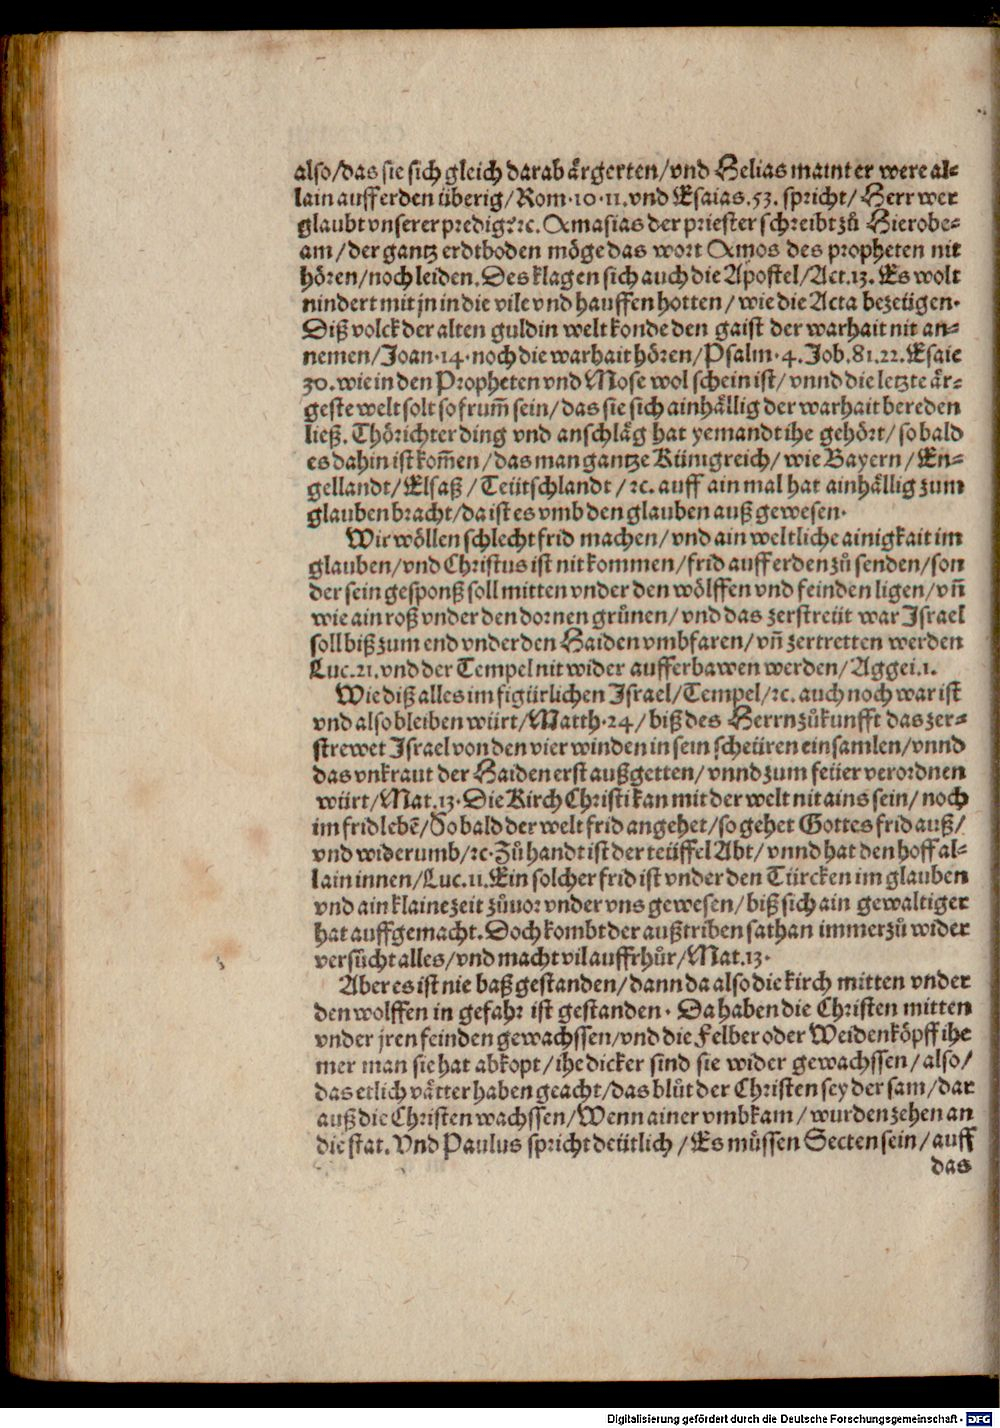 also/das sie sich gleich darab ärgerten/vnd Helias maint er were al⸗
lain auff erden überig/Rom.10.11.vnd Esaias.53. spricht/ Herr wer
glaubt vnserer predig?ꝛc. Amasias der priester schreibt zů Hierobe⸗
am/der gantz erdtboden möge das wort Amos des propheten nit
hören/noch leiden. Des klagen sich auch die Apostel/Act.13. Es wolt
nindert mit jn in die vile vnd hauffen hotten/ wie die Acta bezeügen.
Diß volck der alten guldin welt konde den gaist der warhait nit an⸗
nemen/Joan.14.noch die warhait hören/Psalm.4.Job.81.22.Esaie
30.wie in den Propheten vnd Mose wol schein ist/vnnd die letzte är⸗
geste welt solt so frum̄ sein/das sie sich ainhällig der warhait bereden
ließ. Thörichter ding vnd anschläg hat yemandt ihe gehört/so bald
es dahin ist kom̄en/das man gantze Künigreich/wie Bayern/En⸗
gellandt/Elsaß/Teütschlandt/ꝛc. auff ain mal hat ainhällig zum
glauben bracht/da ist es vmb den glauben auß gewesen.
Wir wöllen schlecht frid machen/vnd ain weltliche ainigkait im
glauben/vnd Christus ist nit kommen/frid auff erden zů senden/son
der sein gesponß soll mitten vnder den wölffen vnd feinden ligen/vn̄
wie ain roß vnder den dornen grůnen/vnd das zerstreüt war Israel
soll biß zum end vnder den Haiden vmbfaren/vn̄ zertretten werden
Luc.21.vnd der Tempel nit wider aufferbawen werden/Aggei.1.
Wie diß alles im figürlichen Israel/Tempel/ꝛc. auch noch war ist
vnd also bleiben würt/Matth.24/biß des Herrn zůkunfft das zer⸗
strewet Israel von den vier winden in sein scheüren einsamlen/vnnd
das vnkraut der Haiden erst außgetten/vnnd zum feüer verordnen
würt/Mat.13.Die Kirch Christi kan mit der welt nit ains sein/noch
im frid lebē/So bald der welt frid angehet/so gehet Gottes frid auß/
vnd widerumb/ꝛc.Zů handt ist der teüffel Abt/vnnd hat den hoff al⸗
lain innen/Luc.11.Ein solcher frid ist vnder den Türcken im glauben
vnd ain klaine zeit zůuor vnder vns gewesen/biß sich ain gewaltiger
hat auffgemacht.Doch kombt der außtriben sathan immerzů wider
versůcht alles/vnd macht vil auffrhůr/Mat.13.
Aber es ist nie baß gestanden/dann da also die kirch mitten vnder
den wolffen in gefahr ist gestanden. Da haben die Christen mitten
vnder jren feinden gewachssen/vnd die Felber oder Weidenköpff ihe
mer man sie hat abkopt/ihe dicker sind sie wider gewachssen/also/
das etlich vätter haben geacht/das blůt der Christen sey der sam/dar
auß die Christen wachssen/Wenn ainer vmbkam/wurden zehen an
die stat. Vnd Paulus spricht deütlich/Es müssen Secten sein/auff
das
Digitalisierung gefördert durch die Deutsche Forschungsgemeinschaft - DFG